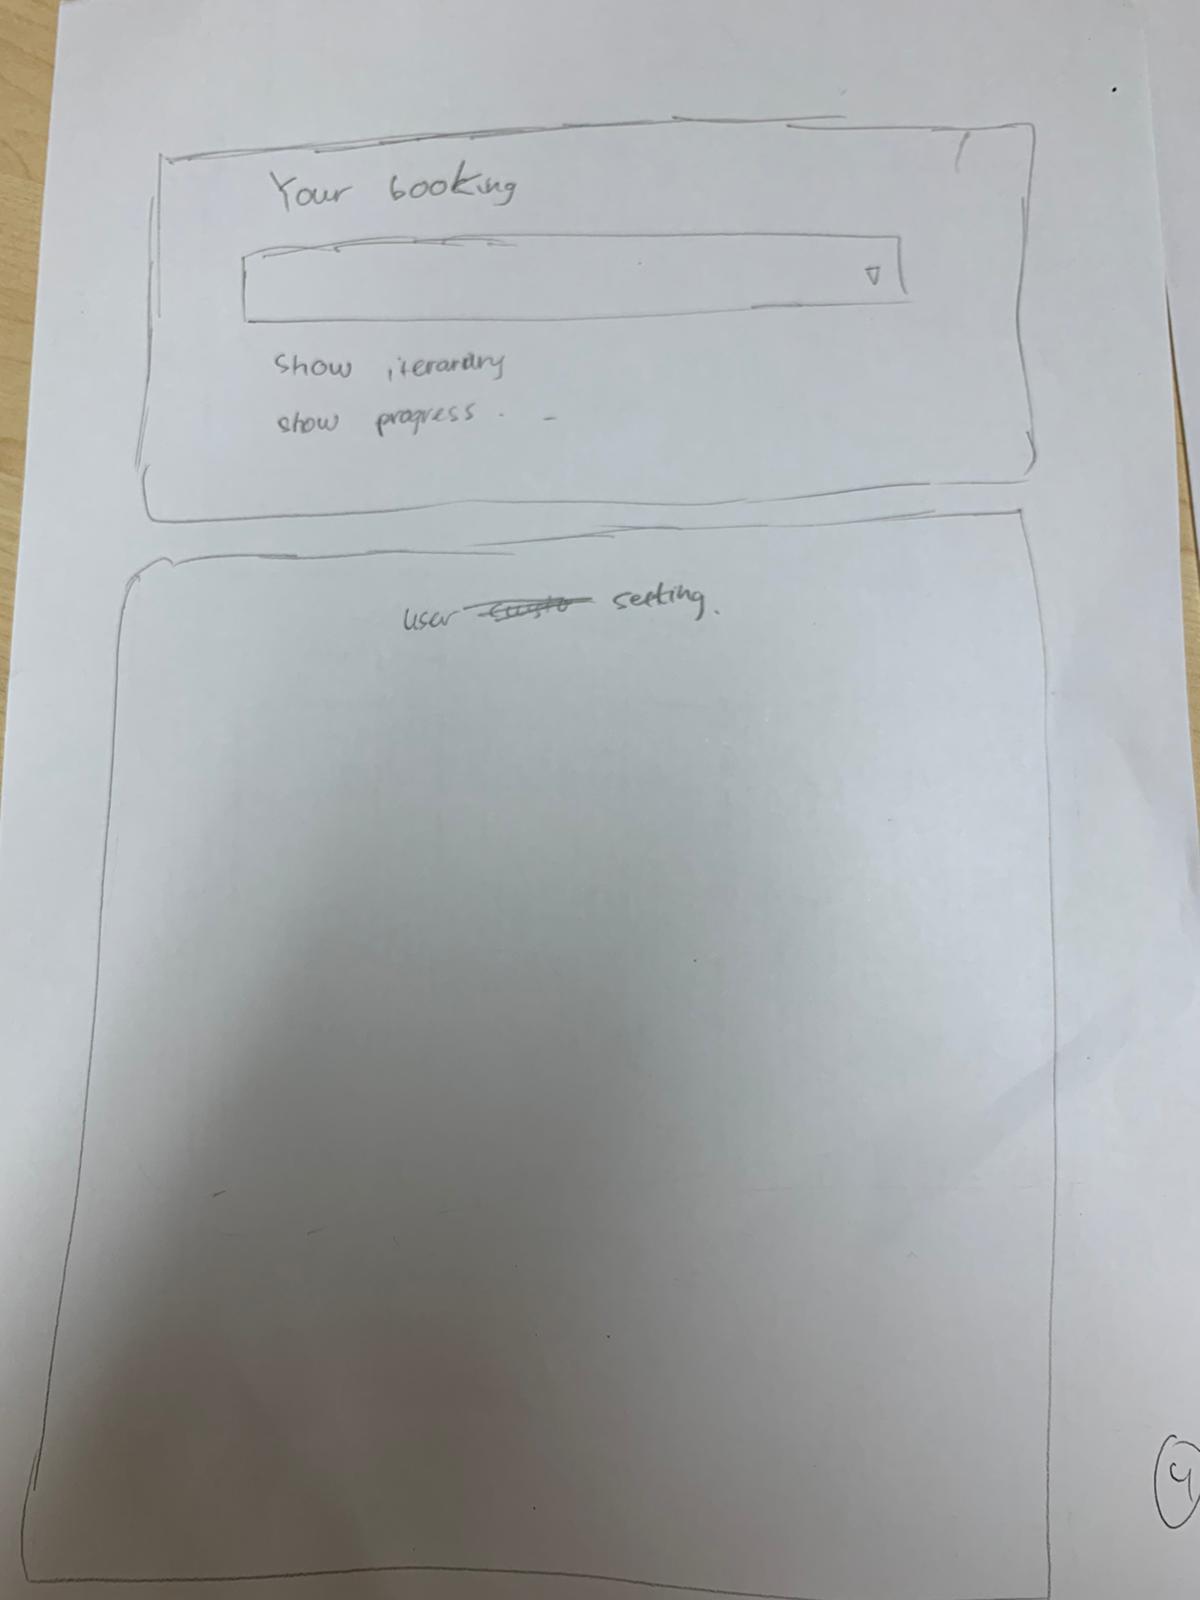 Your booking
show iterardry
show progress.
user setting.
4